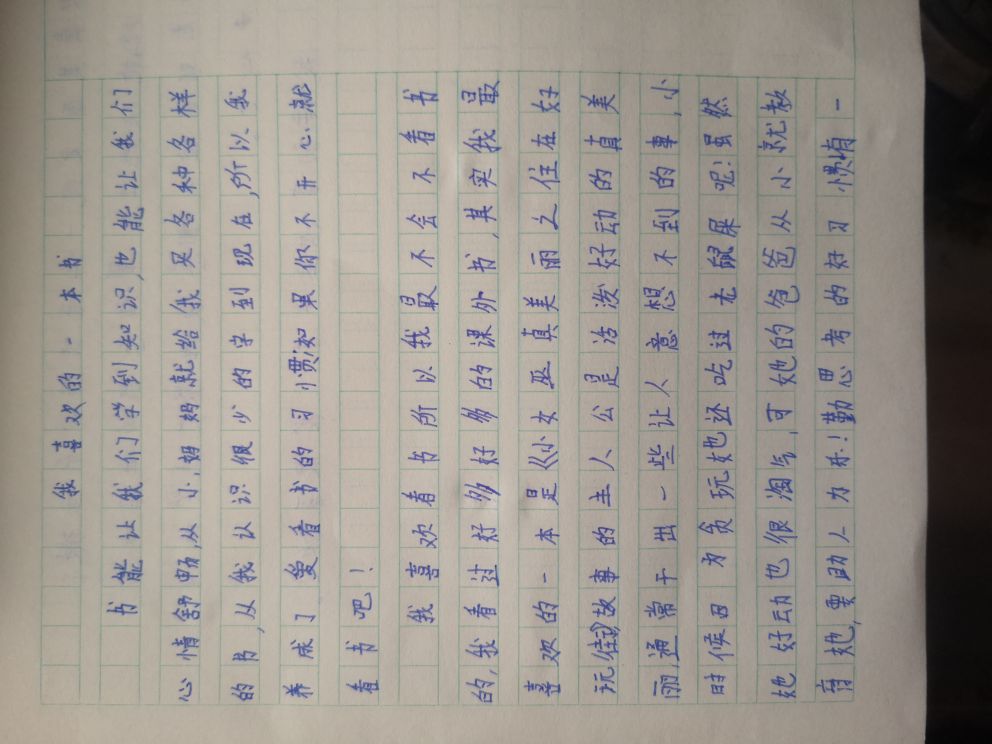 我喜欢的一本书
书能让我们学到知识,也能让我们
心情舒畅,从小,妈妈就给我买各种各样
的书,从我认识很少的字到现在,所以我
养成了爱看书的习惯,如果你不开心就
看书吧!
我喜欢看书所以我最不会不看书
的,我看过好多好多的课外书,其实我最
喜欢的一本是《小女巫真美丽之住在好
玩街》故事的主人公是活泼好动的真美
丽通常干出一些让人意想不到的事,小
时候因为贪玩她还吃过老鼠屎呢!虽然
她好动也很淘气,可她的爸爸从小就教
育她,要助人为乐!勤思考的好习惯有一